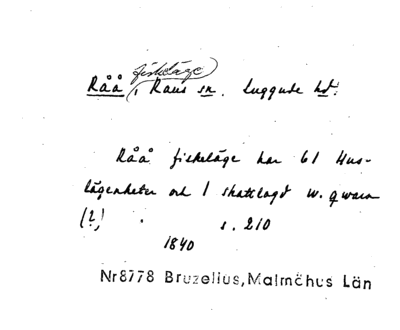 fiskeläge
Råå, Raus sn. Luggude hd.
Råå fiskeläge har 61 Hus-
lägenheter och 1 skattlagd w. qwarn
(?) s. 210
1840
Nr8778 Bruzelius, Malmöhus Län